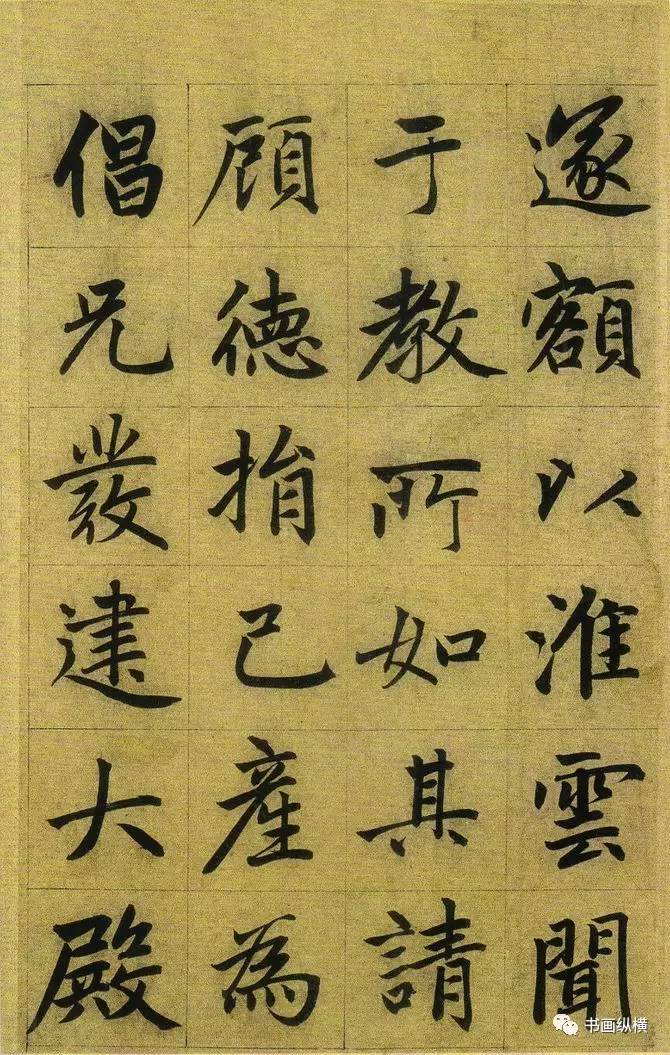 遂額以淮雲聞
于教所如其請
顧德捐己產為
倡凡發建大殿
书画纵横